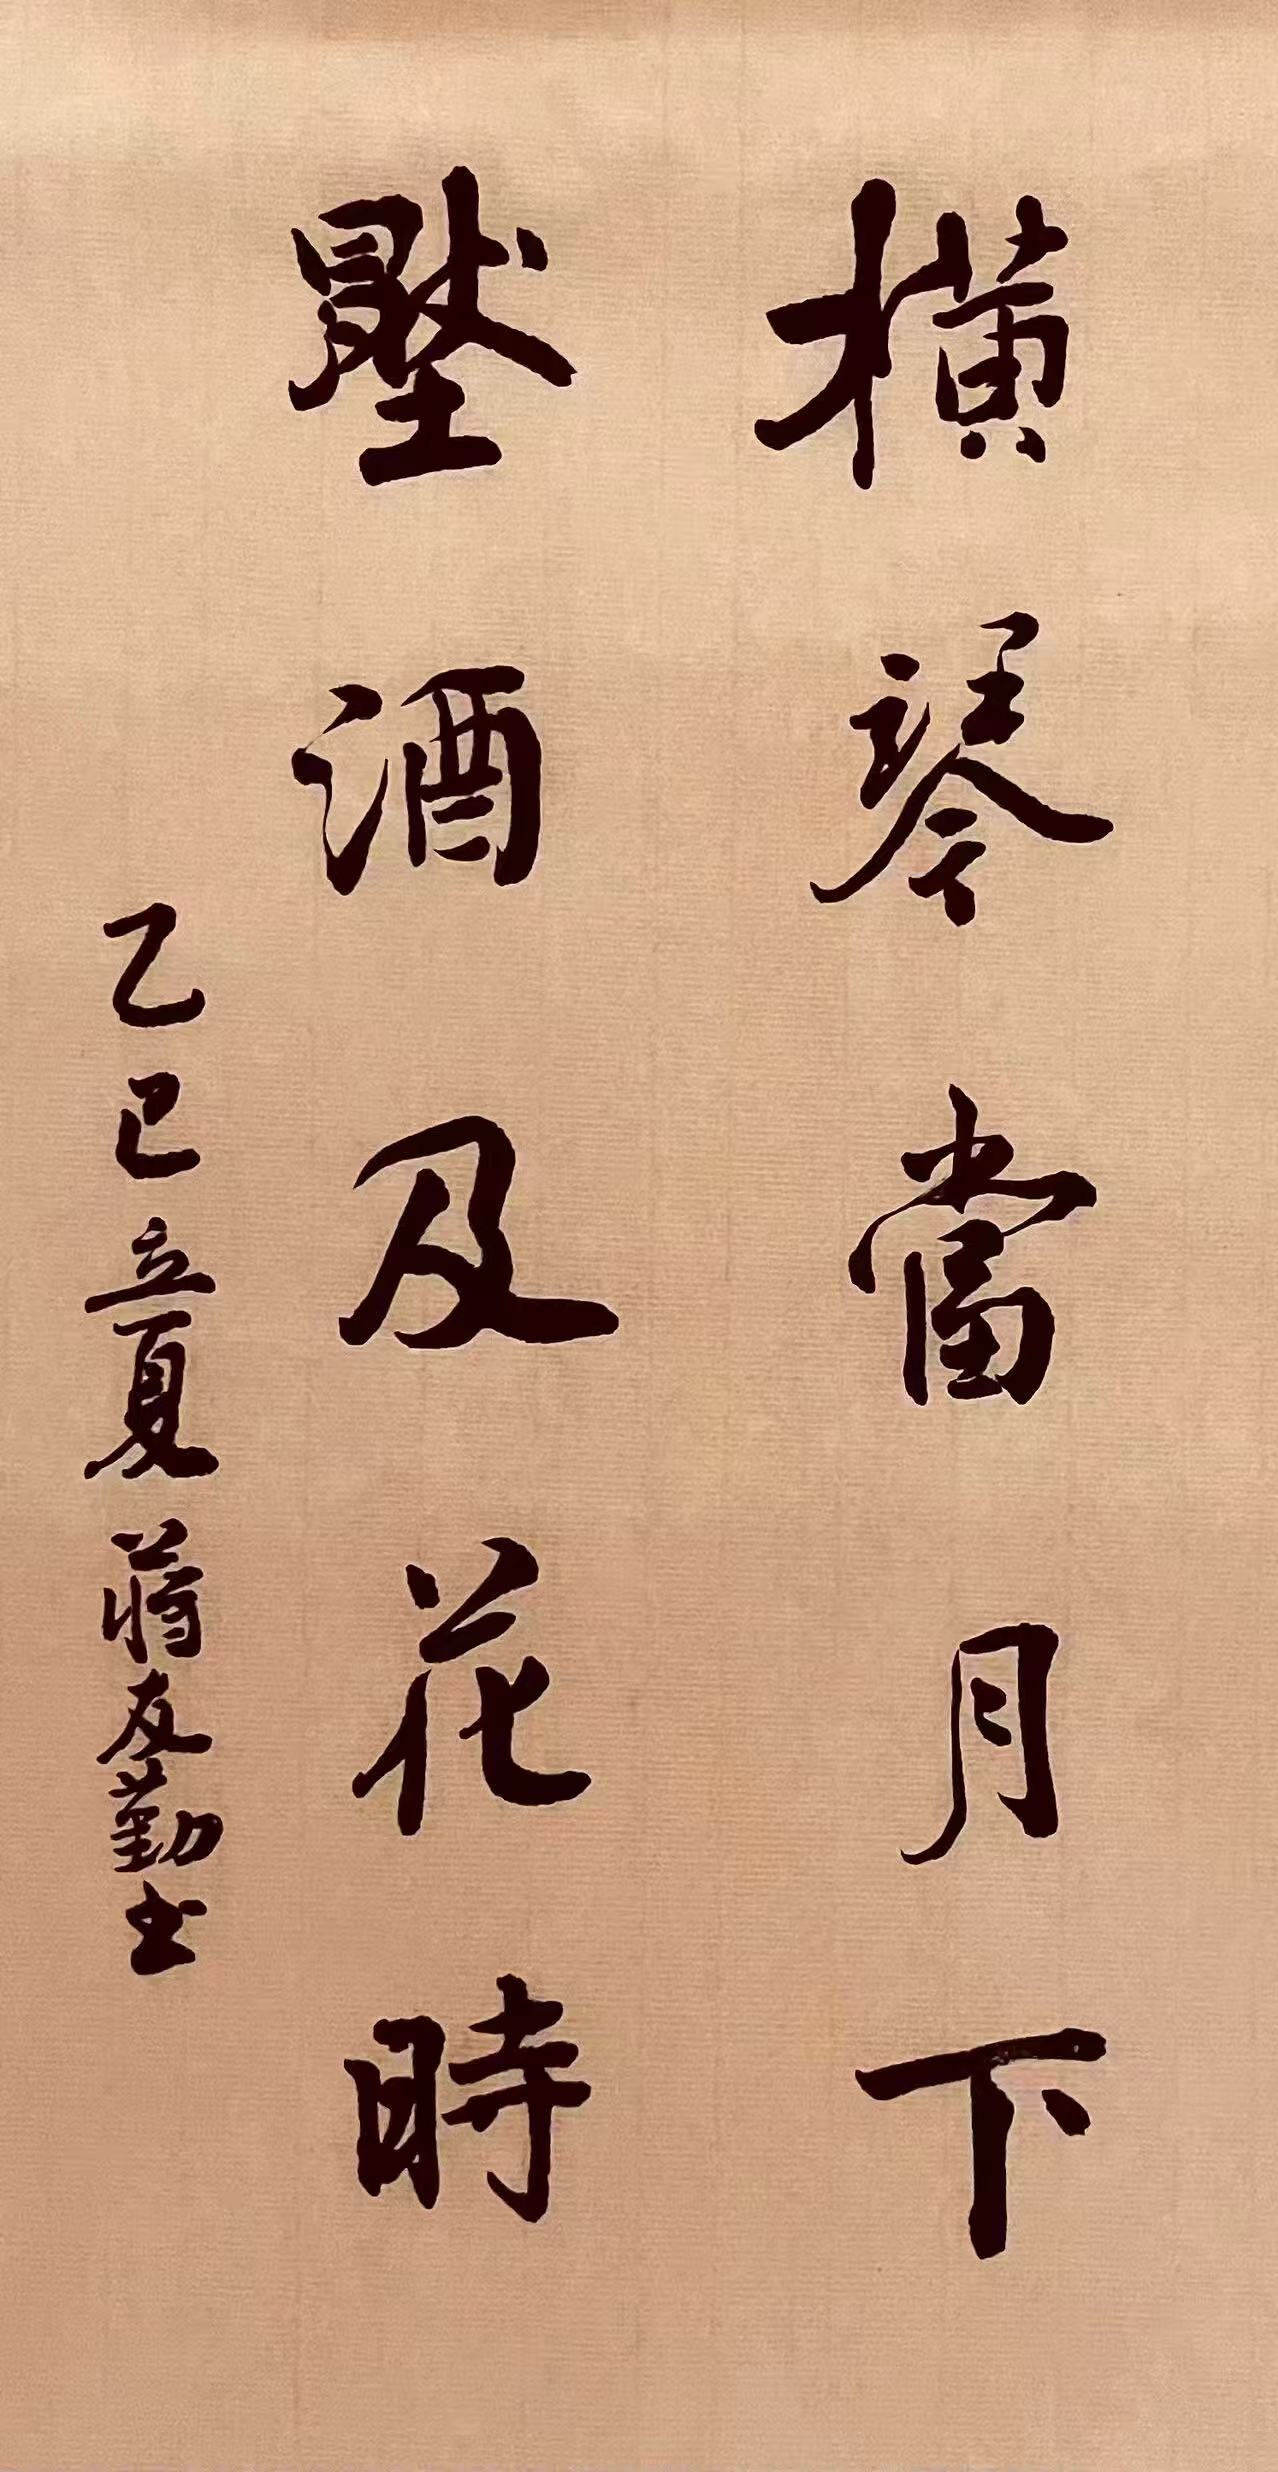 橫琴當月下
壓酒及花時
乙巳立夏蔣友勤書